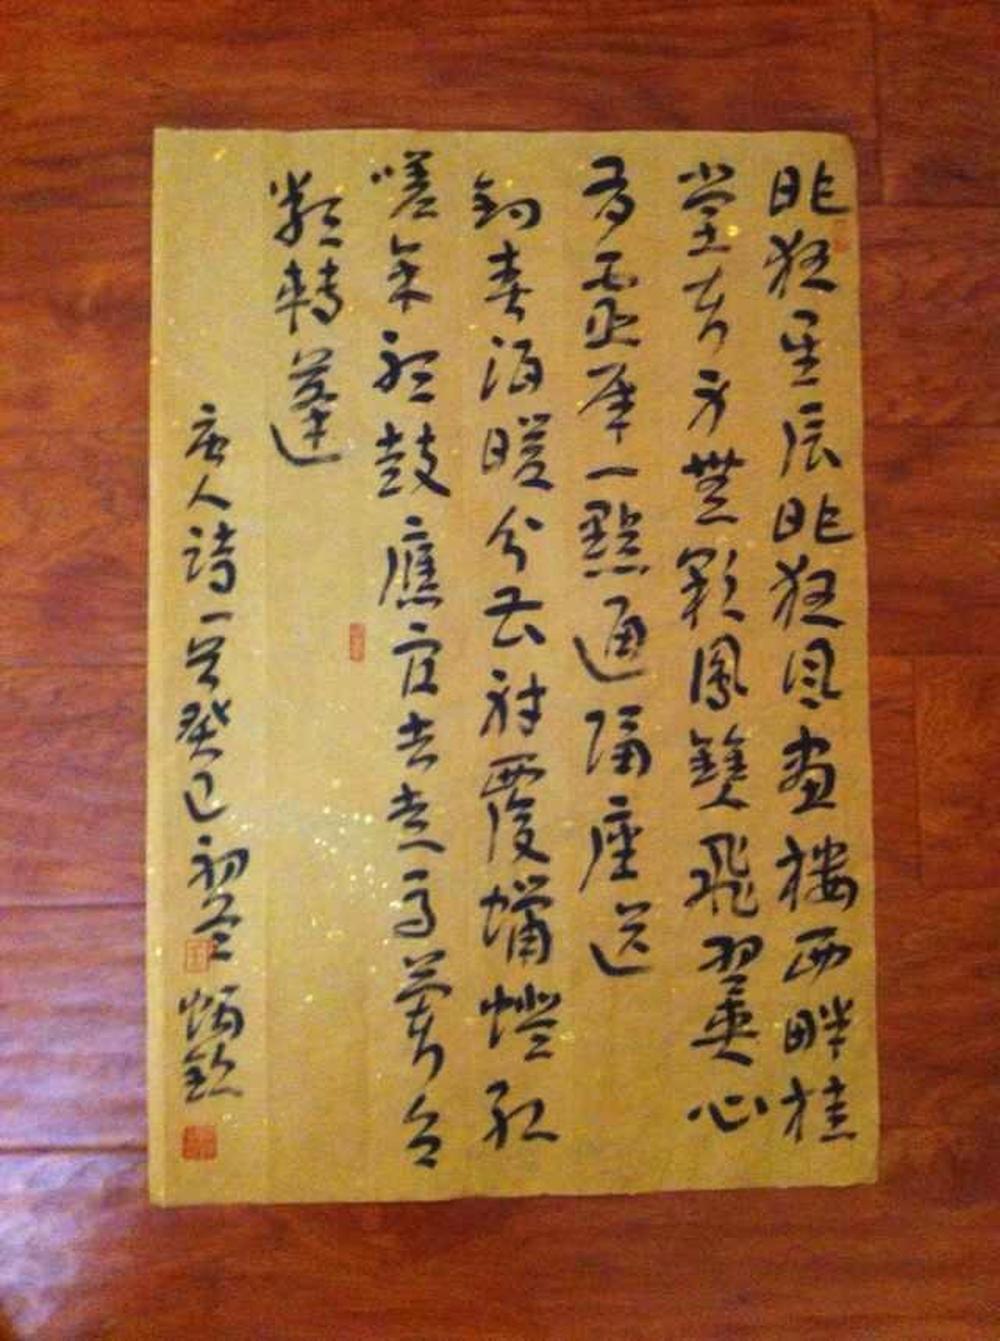 昨夜星辰昨夜風畫樓西畔桂
堂東身無彩鳳雙飛翼心
有靈犀一點通隔座送
鉤春酒暖分曹射覆蠟燈紅
嗟余聽鼓應官去走馬蘭台
類轉蓬
唐人詩一首癸巳初冬炳欽